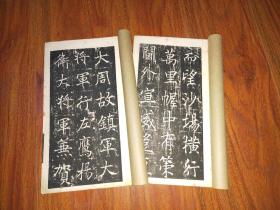 大周故鎮軍大
將軍行左鷹揚
衛大將軍兼賀
而望沙場橫行
萬里幄中有策
閫外宣威